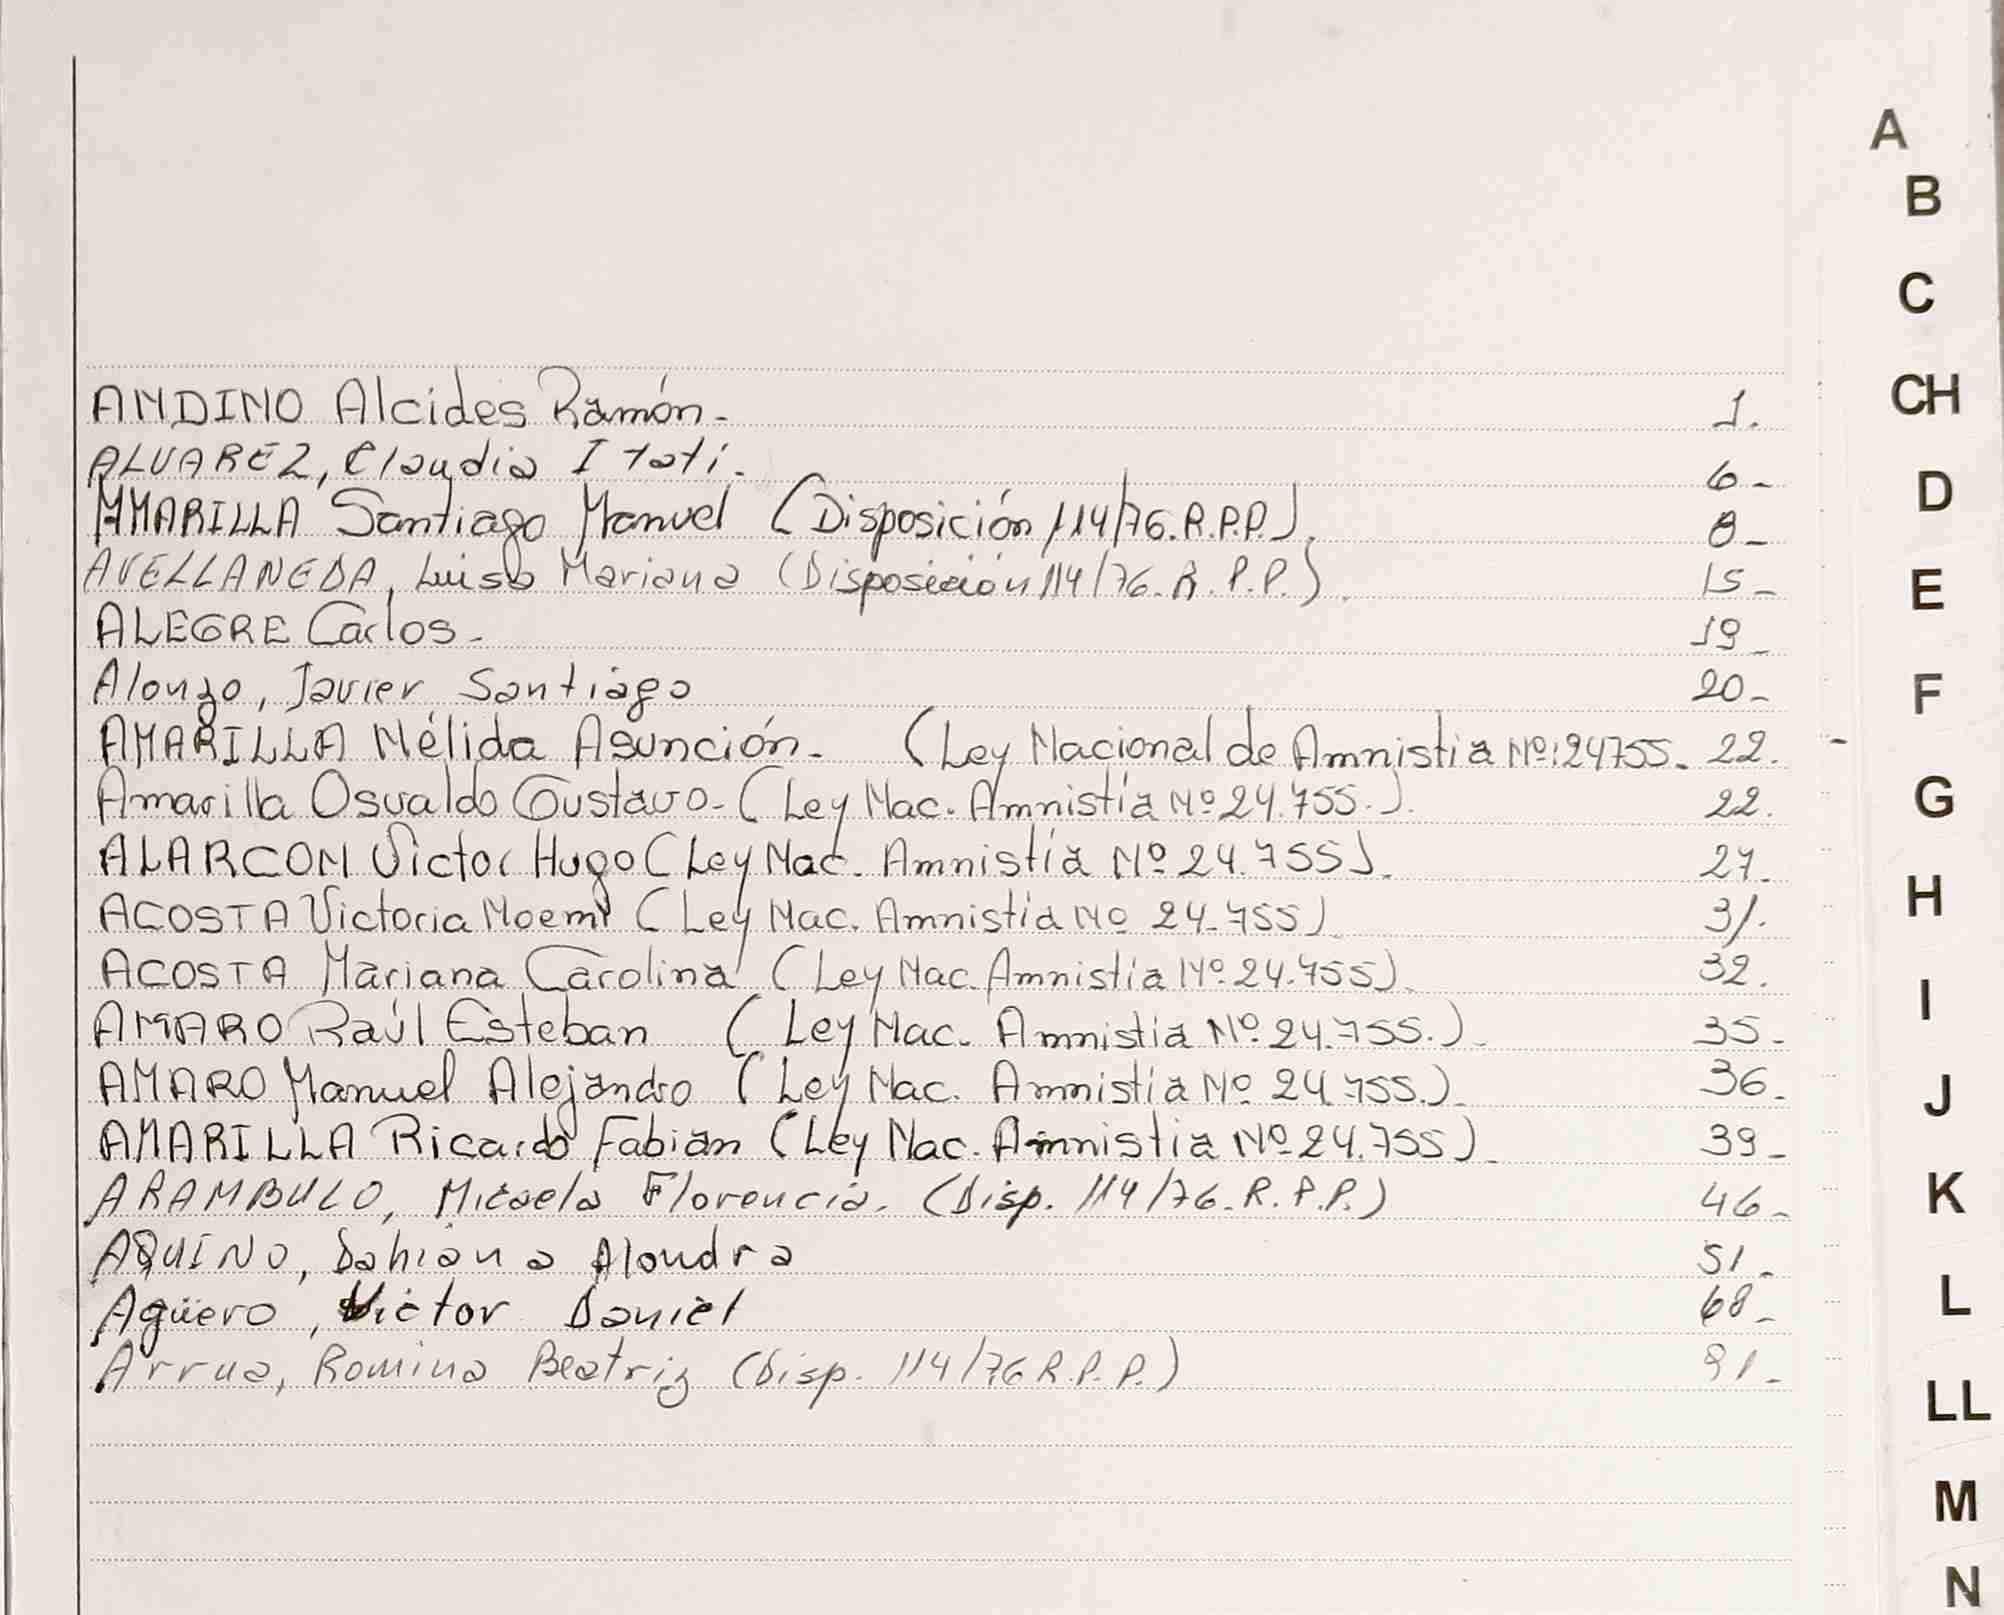 ANDINO Alcides Ramón. 1.
ALVAREZ, Claudia Itatí. 6-
AMARILLA Santiago Manuel (Disposición 114/76.R.P.P.). 8-
AVELLANEDA, Luisa Mariana (Disposición 114/76.R.P.P.). 15-
ALEGRE Carlos. 19-
Alonzo, Javier Santiago 20-
AMARILLA Nélida Asunción. (Ley Nacional de Amnistia Nº:24755. 22.
Amarilla Osvaldo Gustavo-(Ley Nac. Amnistía Nº 24.755.). 22.
ALARCON Victor Hugo (Ley Nac. Amnistía Nº 24.755). 27.
ACOSTA Victoria Noemí (Ley Nac. Amnistía Nº 24.755). 31.
ACOSTA Mariana Carolina (Ley Nac. Amnistía Nº.24.755). 32.
AMARO Raúl Esteban (Ley Nac. Amnistia Nº.24.755.). 35-
AMARO Manuel Alejandro (Ley Nac. Amnistia Nº 24.755.). 36-
AMARILLA Ricardo Fabián (Ley Nac. Amnistia Nº 24.755). 39-
ARAMBULO, Micaela Florencia. (Disp. 114/76.R.P.P.) 46-
AQUINO, Dahiana Alondra 51-
Agüero, Victor Daniel 68-
Arrua, Romina Beatriz (Disp. 114/76 R.P.P.) 91-
A
B
C
CH
D
E
F
G
H
I
J
K
L
LL
M
N